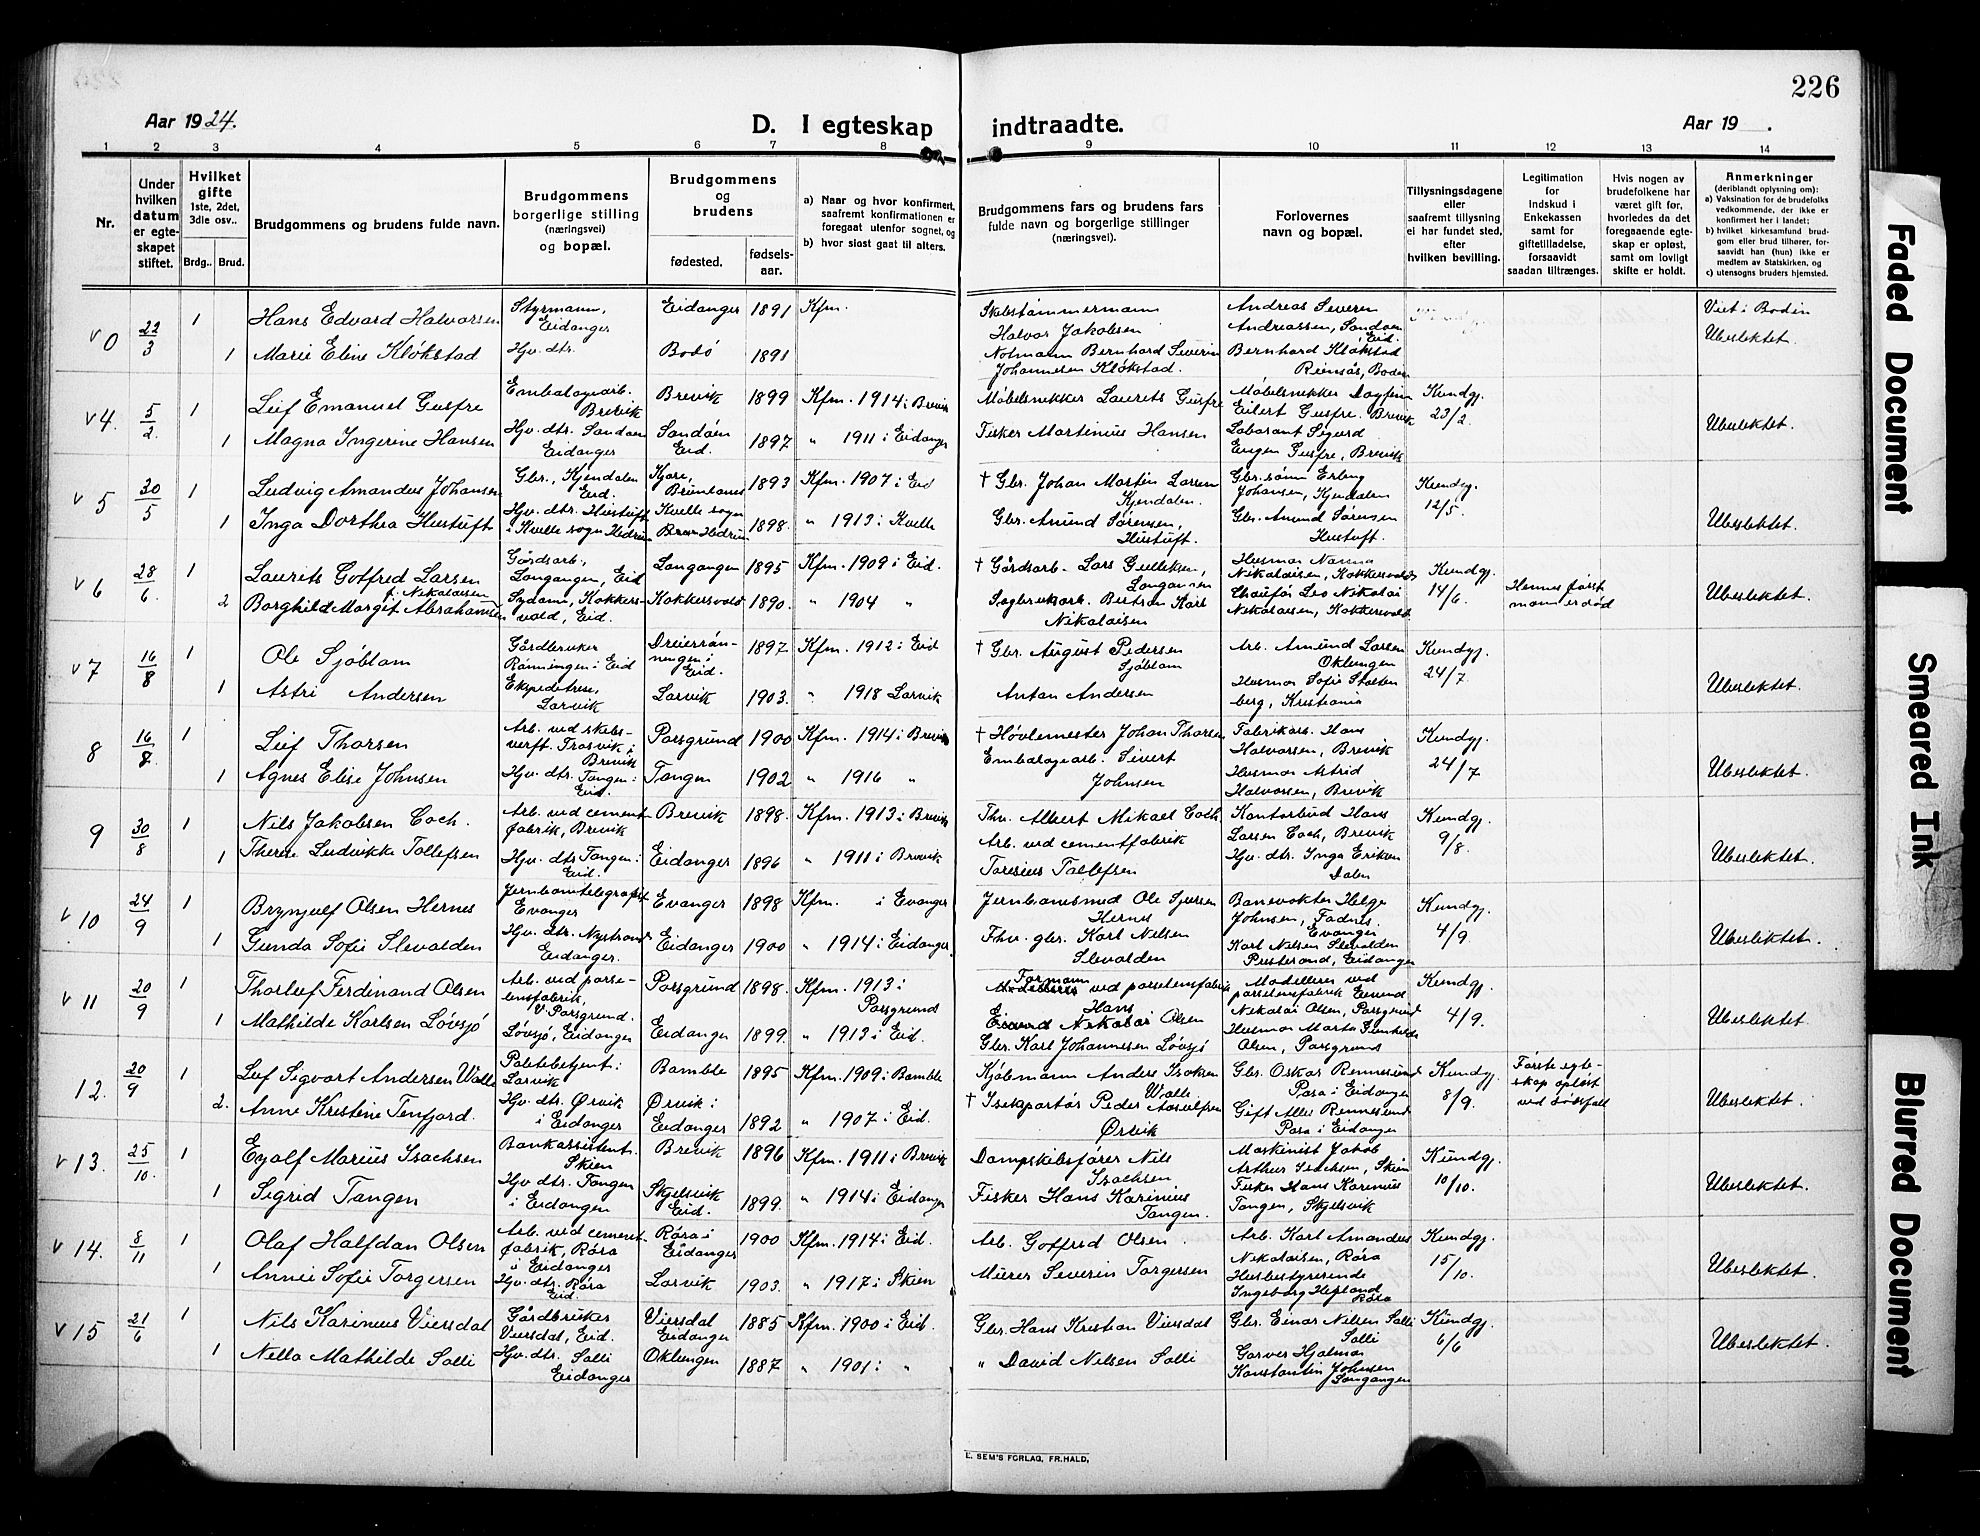 226
Aar 1924.
D. I egteskap indtraadte.
Aar 19 .
1 2 3 4 5 6 7 8 9 10 11 12 13 14
Nr.
Under hvilken datum er egteskapet stiftet.
Hvilket gifte 1ste, 2det, 3die osv..
Brdg.. Brud.
Brudgommens og brudens fulde navn.
Brudgommens borgerlige stilling (næringsvei) og bopæl.
Brudgommens og brudens
fødested. fødselsaar.
a) Naar og hvor konfirmert, saafremt konfirmationen er foregaat utenfor sognet, og
b) hvor sidst gaat til alters.
Brudgommens fars og brudens fars fulde navn og borgerlige stillinger (næringsvei).
Forlovernes navn og bopæl.
Tillysningsdagene eller saafremt tillysning ei har fundet sted, efter hvilken bevilling.
Legitimation for Indskud i Enkekassen samt for giftetilladelse, forsaavidt saadan tiltrænges.
Hvis nogen av brudefolkene har været gift før, hvorledes da det foregaaende egteskap er opløst, samt om lovligt skifte er holdt.
Anmerkninger (deriblandt oplysning om):
a) Vaksination for de brudefolks vedkommende, der ikke er konfirmert her i landet;
b) hvilket kirkesamfund brudgom eller brud tilhører, forsaavidt han (hun) ikke er medlem av Statskirken, og
c) utensogns bruders hjemsted.
v 0 22/3 1 Hans Edvard Halvorsen Styrmann, Eidanger Eidanger 1891 Kfm. Skibstømmermann Halvor Jakobsen Andreas Severin Andreassen, Sandøen, Eid. Viet i Bodin
1 Marie Eline Kløkstad Hjv. dtr. Bodø 1891 Nolmann Bernhard Severin Johannesen Kløkstad. Bernhard Kløkstad Rensås, Bodin Ubeslektet.
v 4. 5/2. 1 Leif Emanuel Gusfre Embalagearb. Brevik Brevik 1899 Kfm. 1914 i Brevik Møbelsnekker Laurits Gusfre Møbelsnekker Dagfin Eilert Gusfre. Brevik Kundgj. 23/2.
1 Magna Ingerine Hansen Hjv. dtr. Sandøen Eidanger Sandøen Eid. 1897 " 1911 i Eidanger Fisker Martinius Hansen Laborant Sigurd Eugen Gusfre, Brevik Ubeslektet.
v 5 30/5 1 Ludvig Amandus Johansen Gbr., Kjendalen Eid. Kjøre, Brunlanes 1893 Kfm. 1907 i Eid † Gbr. Johan Martin Larsen Kjendalen. Gbr. sønn Erling Johansen, Kjendalen Kundgj. 12/5.
1 Inga Dorthea Hustuft Hjv. dtr. Hustuft i Kvelle sogn Hedrum Kvelle sogn Hedrum 1898. " 1913 i Kvelle Gbr. Amund Sørensen, Hustuft. Gbr. Amund Sørensen Hustuft. Ubeslektet.
v 6 28/6. 1 Laurits Gotfred Larsen Gårdsarb., Langangen, Eid Langangen 1895 Kfm. 1909 i Eid. † Gårdsarb. Lars Gulleksen, Langangen Husmor Nanna Nikolaisen, Kokkersvold Kundgj. 14/6.
2 Borghild Margit Abrahamsen f. Nikolaisen Sydame, Kokkersvold, Eid. Kokkersvold 1890. " 1904 " Sagbruksarb. Bertran Karl Nikolaisen Chaufør Leo Nikolai Nikolaisen, Kokkersvold Hennes først mann er død Ubeslektet.
v 7 16/8 1 Ole Sjøblom Gårdbruker Rønningen i Eid Dreierrønningen i Eid. 1897 Kfm. 1912 i Eid † Gbr. August Pedersen Sjøblom Arb. Amund Larsen Oklungen Kundgj. 24/7.
1 Astri Andersen Ekspeditrise, Larvik Larvik 1903. " 1918 Larvik Anton Andersen Husmor Sofie Stoltenberg, Kristiania Ubeslektet.
8 16/8. 1 Leif Thorsen Arb. ved skibsverft. Trosvik i Brevik Porsgrund 1900 Kfm. 1914 i Brevik † Høvlemester Johan Thorsen Fabrikarb. Hans Halvorsen, Brevik Kundgj. 24/7
1 Agnes Elise Johnsen Hjv. dtr. Tangen i Eid. Tangen 1902 " 1916 " Embalagearb. Sivert Johnsen Husmor Astrid Halvorsen, Brevik Ubeslektet.
9 30/8 1 Nils Jakobsen Coch. Arb. ved cementfabrik, Brevik Brevik 1898. Kfm. 1913 i Brevik Fhv. Albert Mikael Coch. Kontorbud Hans Larsen Coch, Brevik Kundgj. 9/8.
1 Therese Ludvikke Tollefsen Hjv. dtr Tangen i Eid. Eidanger 1896 " 1911 i Brevik Arb. ved cementfabrik Toresius Tollefsen Hjv. dtr. Inga Eriksen Dalen Ubeslektet.
v 10 24/9 1 Brynjulf Olsen Hernes Jernbanetelegrafist Evanger Evanger 1898 Kfm. i Evanger Jernbanesmed Ole Sjursen Hernes Banevokter Helge Johnsen, Fadnes, Evanger Kundgj. 4/9.
1 Gunda Sofie Slevolden Hjv. dtr. Nystrand Eidanger. Eidanger 1900 " 1914 i Eidanger. Fhv. gbr. Karl Nilsen Slevolden Karl Nilsen Slevolden Prestesand, Eidanger Ubeslektet.
v 11 20/9 1 Thorleif Ferdinand Olsen Arb. ved porselensfabrik, V. Porsgrund. Porsgrund 1898. Kfm. 1913 i Porsgrund Formann ved porselensfabrik Hans Nikolai Olsen Modellører ved porselensfabrik Eivind Nikolai Olsen, Porsgrund Kundgj. 4/9.
1 Mathilde Karlsen Løvsjø Løvsjø, Eidanger Eidanger 1899. " 1913 i Eid. Gbr. Karl Johannesen Løvsjø Husmor Marta Gunhilda Olsen, Porsgrund Ubeslektet
12. 20/9 1 Leif Sigvart Andersen Walle Politibetjent i Larvik Bamble 1895 Kfm. 1909 i Bamble Kjøbmann Anders Isaksen Walle Gbr. Oskar Rennesund Pasa i Eidanger Kundgj. 8/9. Første egteskap opløst ved dødsfall
2. Anne Kristine Tenfjord. Hjv. dtr. Ørvik i Eidanger Ørvik i Eidanger 1892 " 1907 i Eid. † Isekspørtør Peder Ørvik Gift Allis Rennesund Pasa i Eidanger Ubeslektet.
v 13. 25/10. 1 Eyolf Marius Isachsen Bankassistent. Skien Brevik 1896 Kfm. 1911 i Brevik Dampskibsfører Nils Isachsen Maskinist Jakob Arthur Isachsen, Skien Kundgj. 10/10.
1 Sigrid Tangen Hjv dtr. Tangen i Eidangen Skjelsvik Eid. 1899. " 1914 i Eidanger Fisker Hans Karinius Tangen. Fisker Hans Karinius Tangen, Skjelsvik Ubeslektet.
v 14. 8/11 1 Olaf Halfdan Olsen Arb. ved cementfabrik, Røra i Eidanger Røra i Eidanger 1900 Kfm. 1914 i Eid. Arb. Gotfred Olsen. Arb. Karl Amandus Nikolaisen, Røra Kundgj. 15/10.
1 Annie Sofie Torgersen Hjv. dtr. Røra Eid. Larvik 1903. " 1917 i Skien Murer Severin Torgersen Husbestyrerinde Ingeborg Hegland Røra Ubeslektet.
v 15 21/6 1 Nils Karinius Viersdal Gårdbruker Viersdal, Eid. Viersdal Eidanger 1885 Kfm. 1900 i Eid. Gbr. Hans Kristian Viersdal Gbr. Einar Nilsen Solli Solli Kundgj. 6/6
1 Nella Mathilde Solli Hjv. dtr. Solli Eidanger Oklungen 1887 " 1901 i " " David Nilsen Solli Garver Hjalmar Konstantin Johnsen Langangen Ubeslektet.
L. SEM'S FORLAG, FR.HALD.
Faded Document
Smeared Ink
Blurred Document